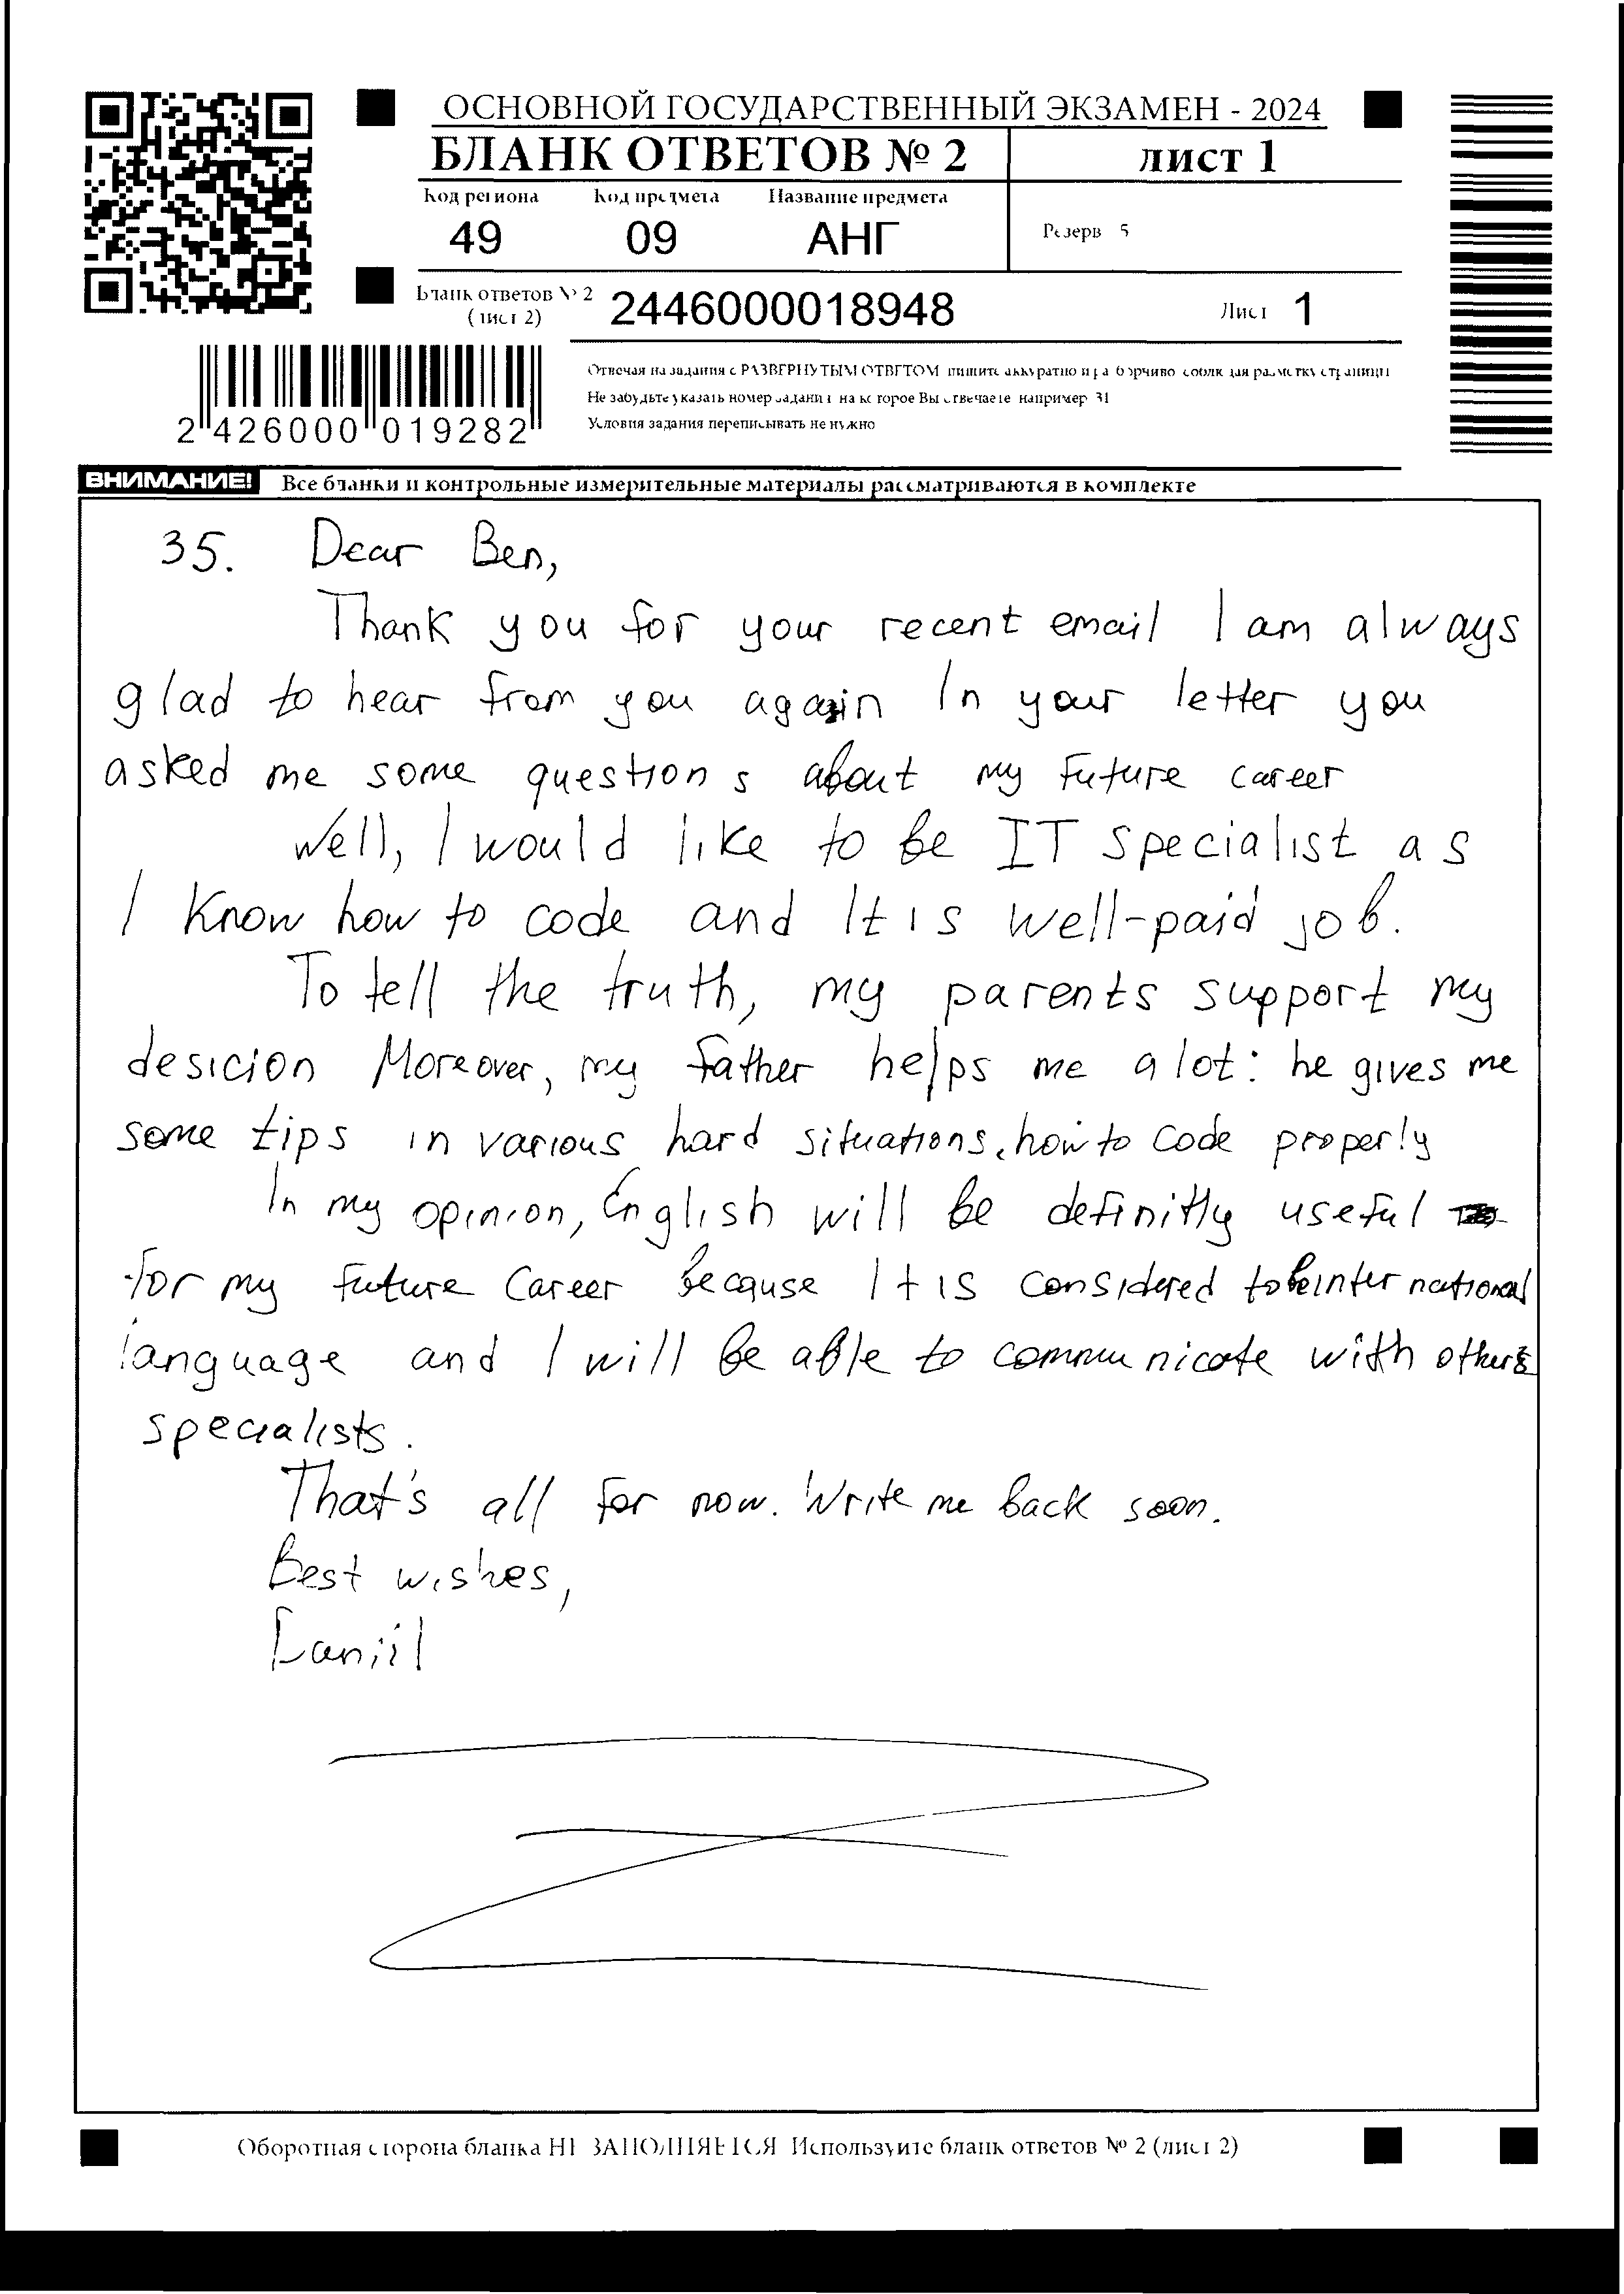 ОСНОВНОЙ ГОСУДАРСТВЕННЫЙ ЭКЗАМЕН - 2024
БЛАНК ОТВЕТОВ № 2 лист 1
Код региона Код предмета Название предмета
49 09 АНГ Резерв 5
Бланк ответов № 2 (лист 2) 2446000018948 Лист 1
Отвечая на задания с РАЗВЕРНУТЫМ ОТВЕТОМ пишите аккуратно и разборчиво соблюдая разметку страницы
Не забудьте указать номер задания на которое Вы отвечаете например 31
Условия задания переписывать не нужно
2 426000 019282
ВНИМАНИЕ! Все бланки и контрольные измерительные материалы рассматриваются в комплекте
35. Dear Ben,
Thank you for your recent email I am always
glad to hear from you again In your letter you
asked me some questions about my future career
Well, I would like to be IT specialist as
I know how to code and It is well-paid job.
To tell the truth, my parents support my
desicion Moreover, my father helps me a lot: he gives me
some tips in various hard situations, how to code properly
In my opinion, English will be definitly useful
for my future career because It is considered to be international
language and I will be able to communicate with others
specialists.
That's all for now. Write me back soon.
Best wishes,
Daniil
Оборотная сторона бланка НЕ ЗАПОЛНЯЕТСЯ Используйте бланк ответов № 2 (лист 2)